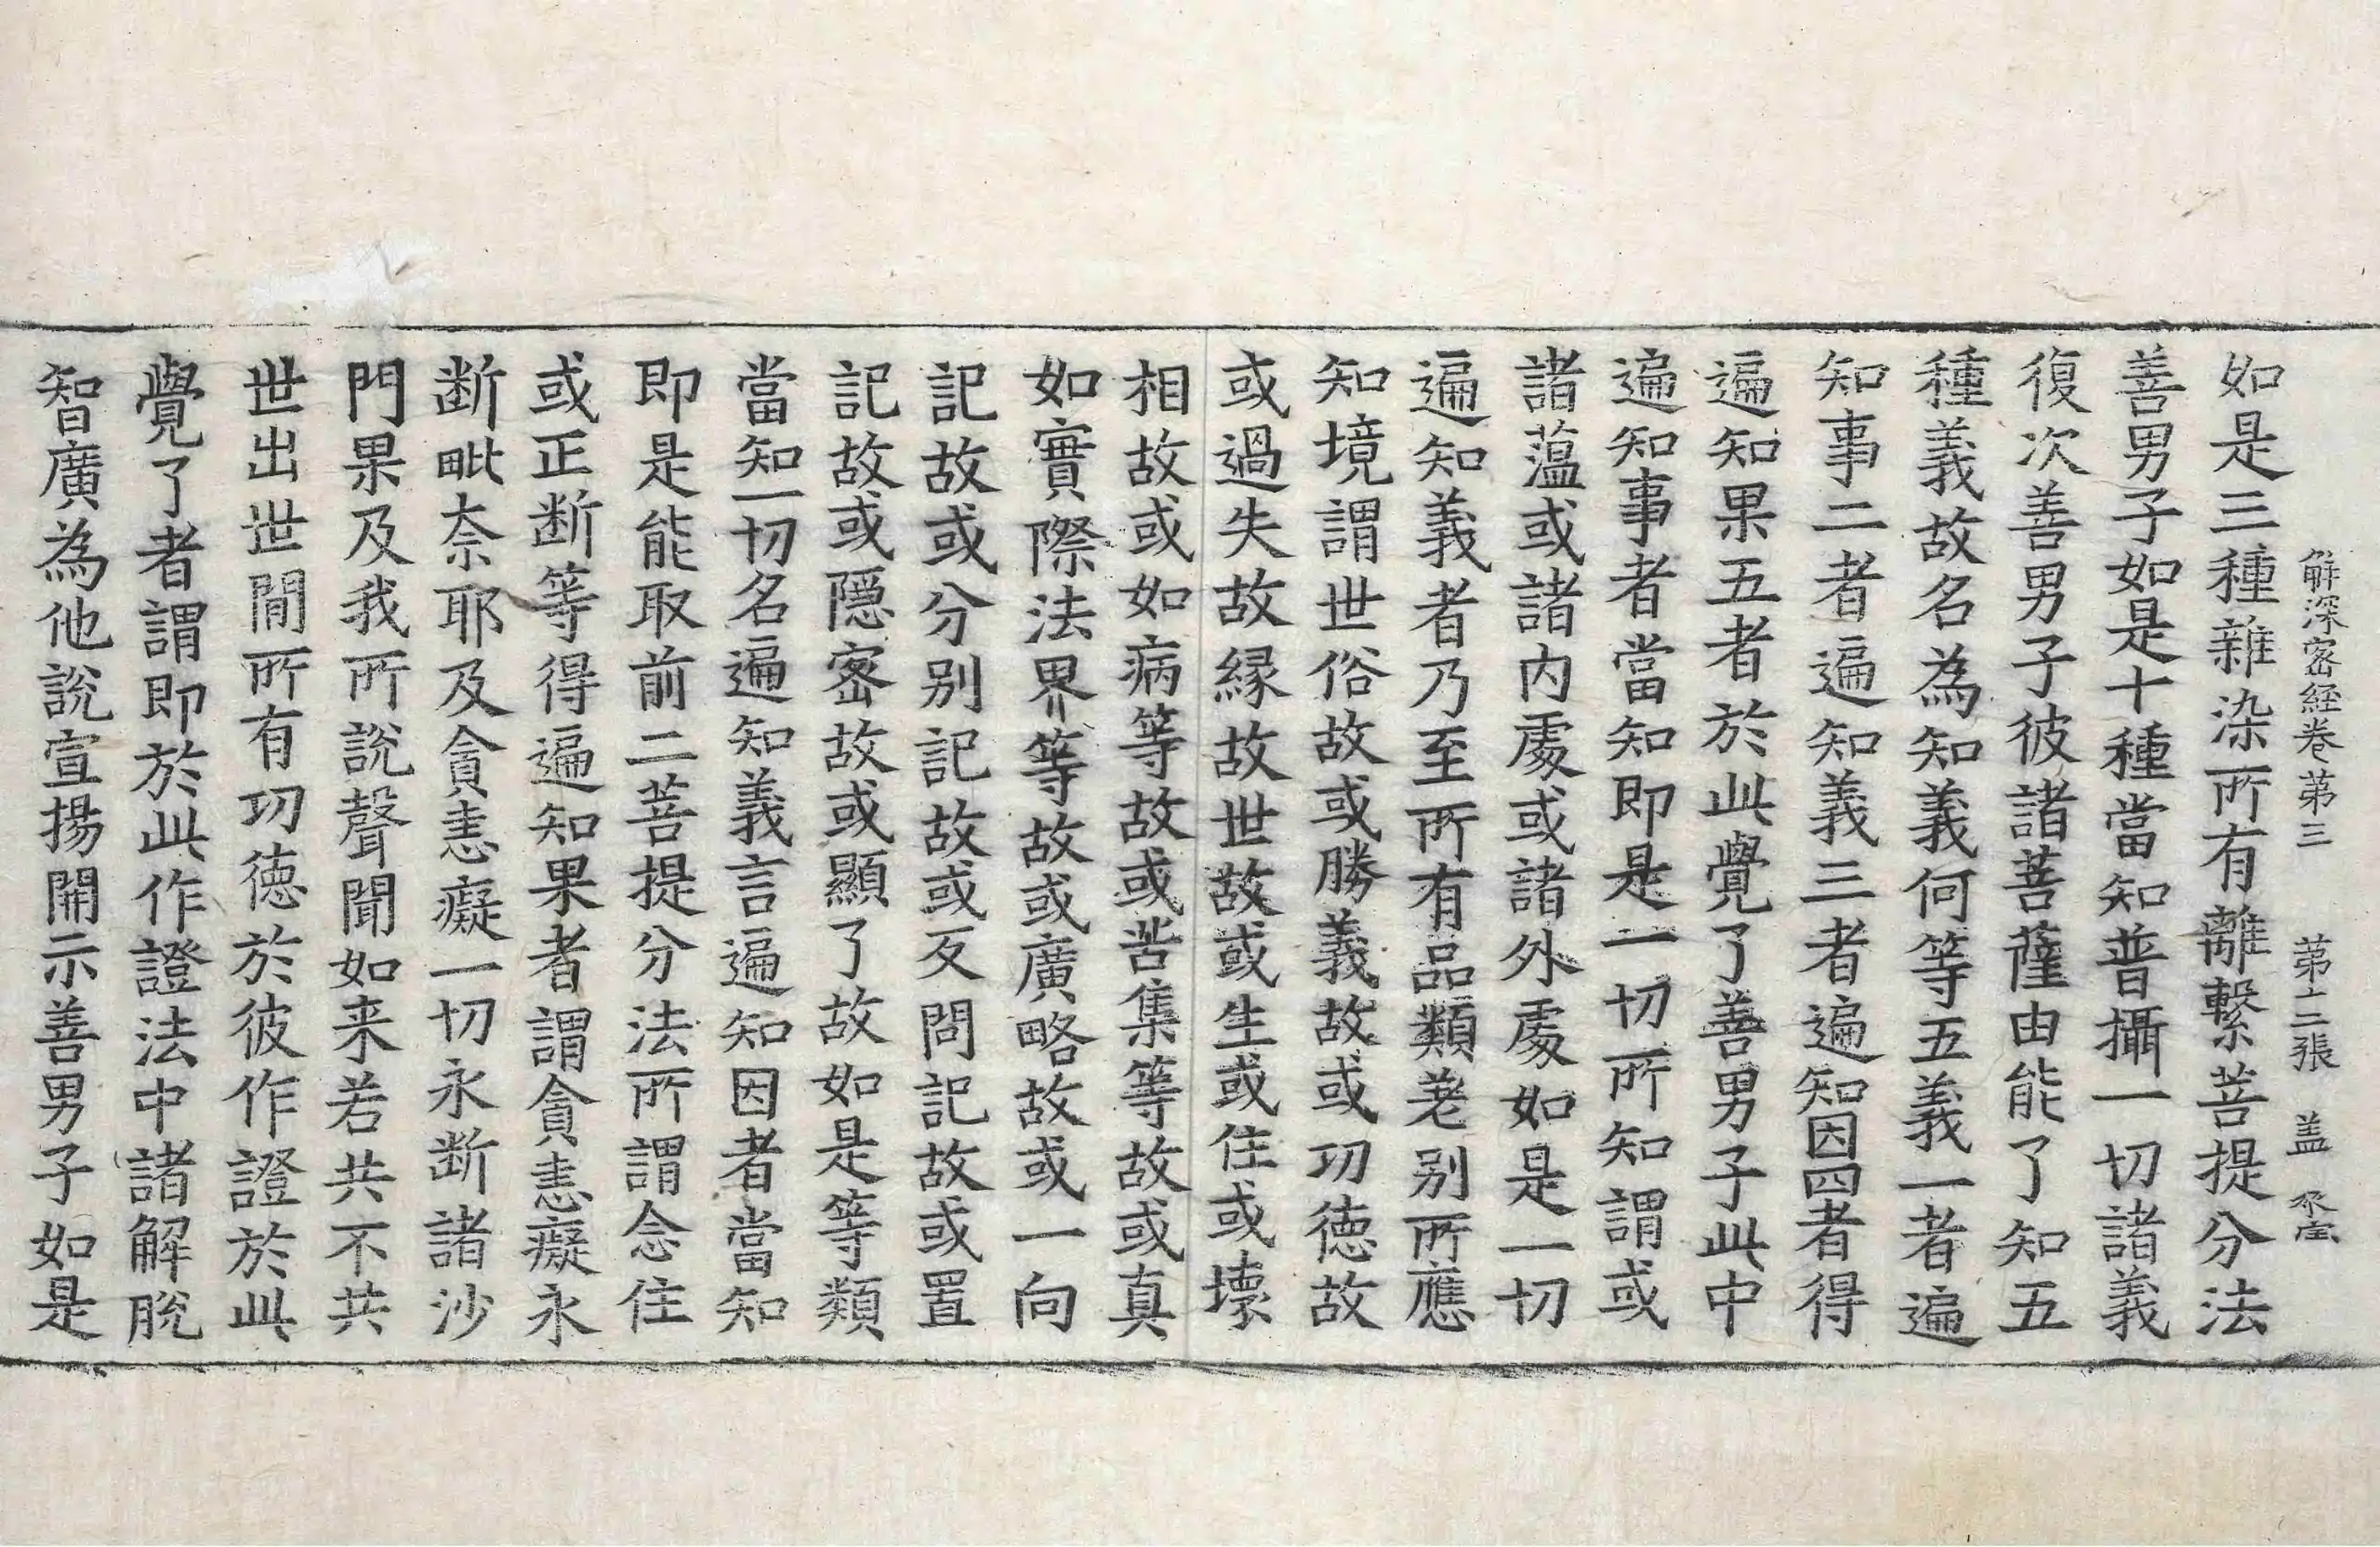 解深密經卷第三 第十二張 盖
如是三種雜染所有離繫菩提分法
善男子如是十種當知普攝一切諸義
復次善男子彼諸菩薩由能了知五
種義故名為知義何等五義一者遍
知事二者遍知義三者遍知因四者得
遍知果五者於此覺了善男子此中
遍知事者當知即是一切所知謂或
諸薀或諸内處或諸外處如是一切
遍知義者乃至所有品類差别所應
知境謂世俗故或勝義故或功德故
或過失故緣故世故或生或住或壞
相故或如病等故或苦集等故或真
如實際法界等故或廣略故或一向
記故或分别記故或反問記故或置
記故或隱密故或顯了故如是等類
當知一切名遍知義言遍知因者當知
即是能取前二菩提分法所謂念住
或正断等得遍知果者謂貪恚癡永
断毗奈耶及貪恚癡一切永断諸沙
門果及我所說聲聞如来若共不共
世出世間所有功德於彼作證於此
覺了者謂即於此作證法中諸解脫
智廣為他說宣揚開示善男子如是